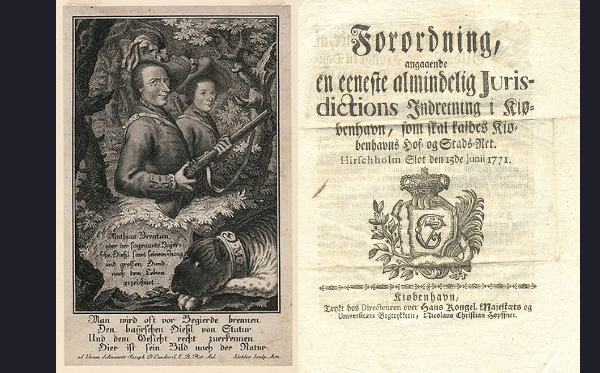 Mathias Brentan,
oder der sogenante Bajeri-
sche Hießl samt seinem Jung,
und grossen Hund
nach dem Leben
gezeichnet.
Man wird oft vor Begierde brennen
Den bayrschen Hießl von Statur
Und dem Gesicht recht zuerkennen
Hier ist sein Bild nach der Natur.
ad Vivum delineavit Joseph
Sculp. Mon.
Forordning,
angaaende
en eeneste almindelig Juris-
dictions Indretning i Kiø-
benhavn, som skal kaldes Kiø-
benhavns Hof- og Stads-Ret.
Hirschholm Slot den 15de Junii 1771.
Kiøbenhavn,
Trykt hos Directeuren over Hans Kongel. Majestæts og
Universitets Bogtrykkerie, Nicolaus Christian Høpffner.